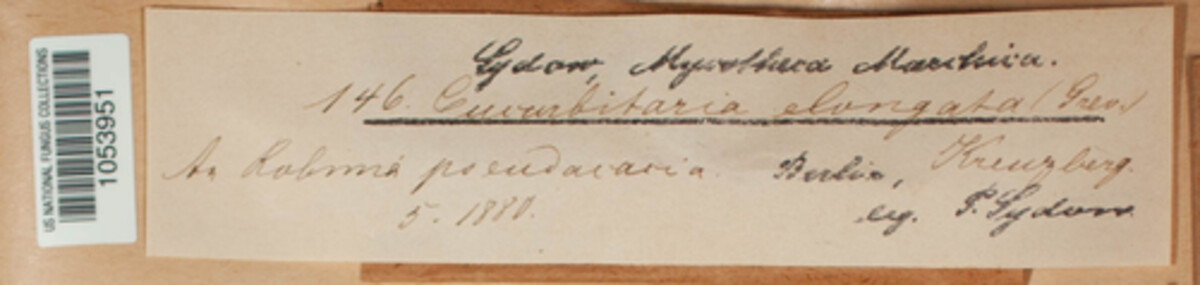 US NATIONAL FUNGUS COLLECTIONS
1053951
Sydow, Mycotheca Marchica.
146. Cucurbitaria elongata (Grev.)
An Robinia pseudacacia. Berlin, Kreuzberg.
5. 1880. leg. P. Sydow